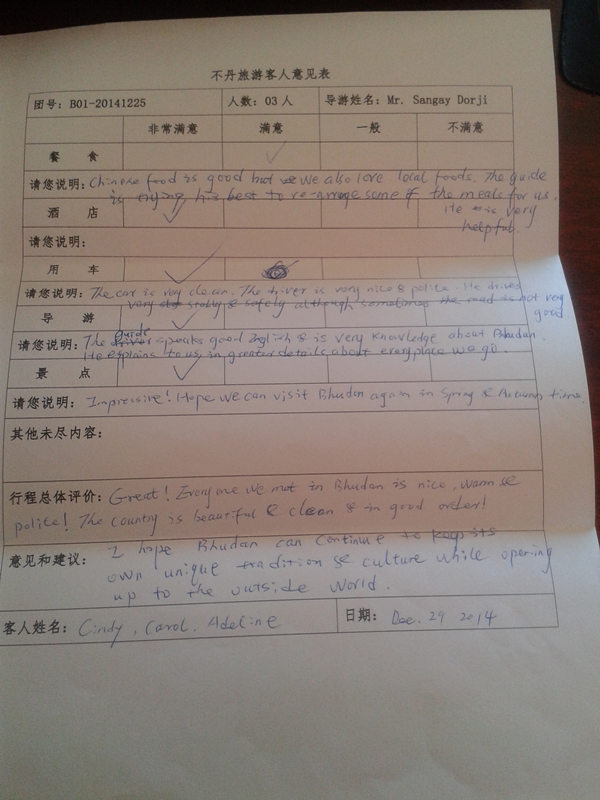 不丹旅游客人意见表
团号: B01-20141225 人数: 03 人 导游姓名: Mr. Sangay Dorji
非常满意 满意 一般 不满意
餐 食 ✓
请您说明: Chinese food is good but we also love local foods. The guide
is trying his best to re-arrange some of the meals for us.
酒 店 ✓ He is very
helpful.
请您说明:
用 车 ✓
请您说明: The car is very clean. The driver is very nice & polite. He drives
very stably & safely although sometimes the road is not very
good
导 游 ✓
guide
请您说明: The driver speaks good English & is very knowledge about Bhudan.
He explains to us in greater details about every place we go.
景 点 ✓
请您说明: Impressive! Hope we can visit Bhudan again in Spring & Autumn time.
其他未尽内容:
行程总体评价: Great! Everyone we met in Bhudan is nice, warm &
polite! The country is beautiful & clean & in good order!
意见和建议: I hope Bhudan can continue to keep its
own unique tradition & culture while opening
up to the outside world.
客人姓名: Cindy, Carol. Adeline 日期: Dec. 29 2014